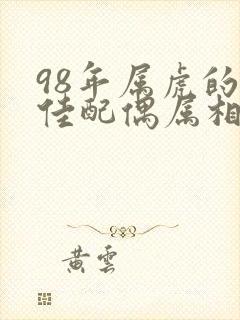 98年属虎的
佳配偶属相
黄云